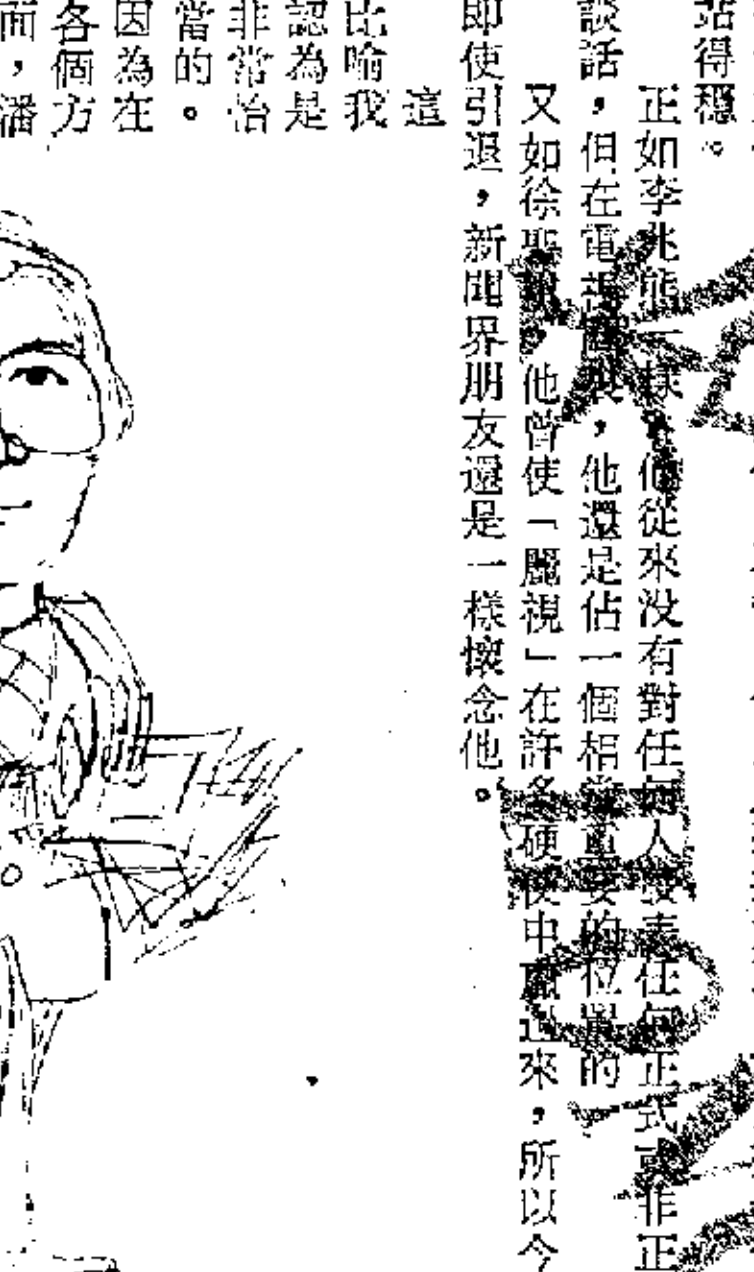 站得穩。
正如李兆熊一樣，他從來没有對任何人發表任何正式或非正
談話，但在電視圈裏，他還是佔一個相當重要的位置的
又如徐，他曾使「麗視」在許多硬仗中贏過來，所以今
即使引退，新聞界朋友還是一樣懷念他。
這
比喻我
認為是
非常恰
當的。
因為在
各個方
面，潘